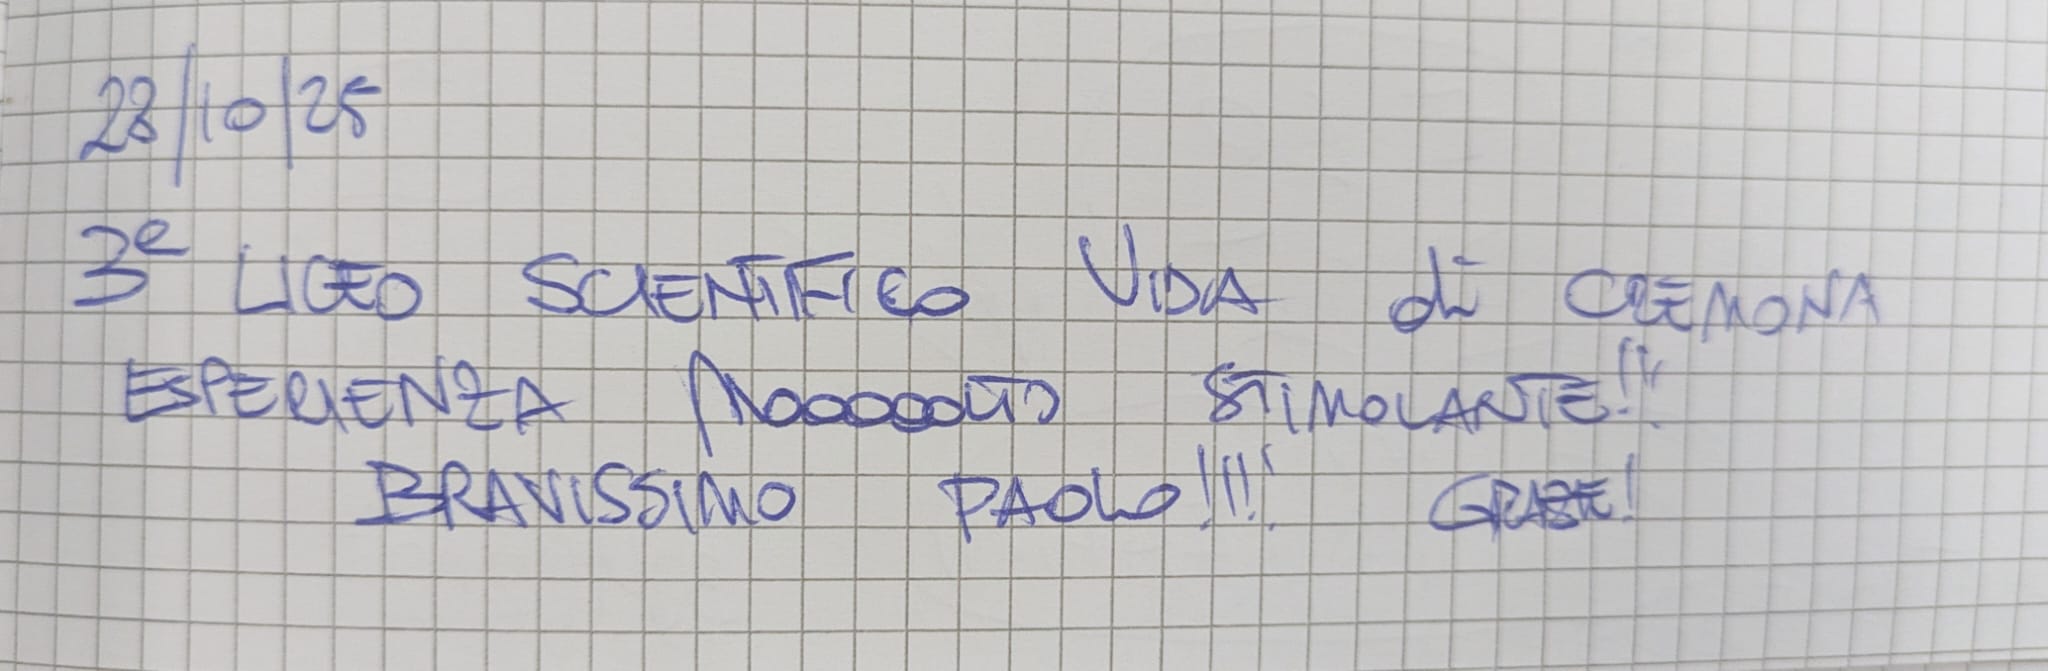 28/10/25
3e LICEO SCIENTIFICO VIDA di CREMONA
ESPERIENZA MooooooLTO STIMOLANTE!!
BRAVISSIMO PAOLO!!!! GRAZIE!